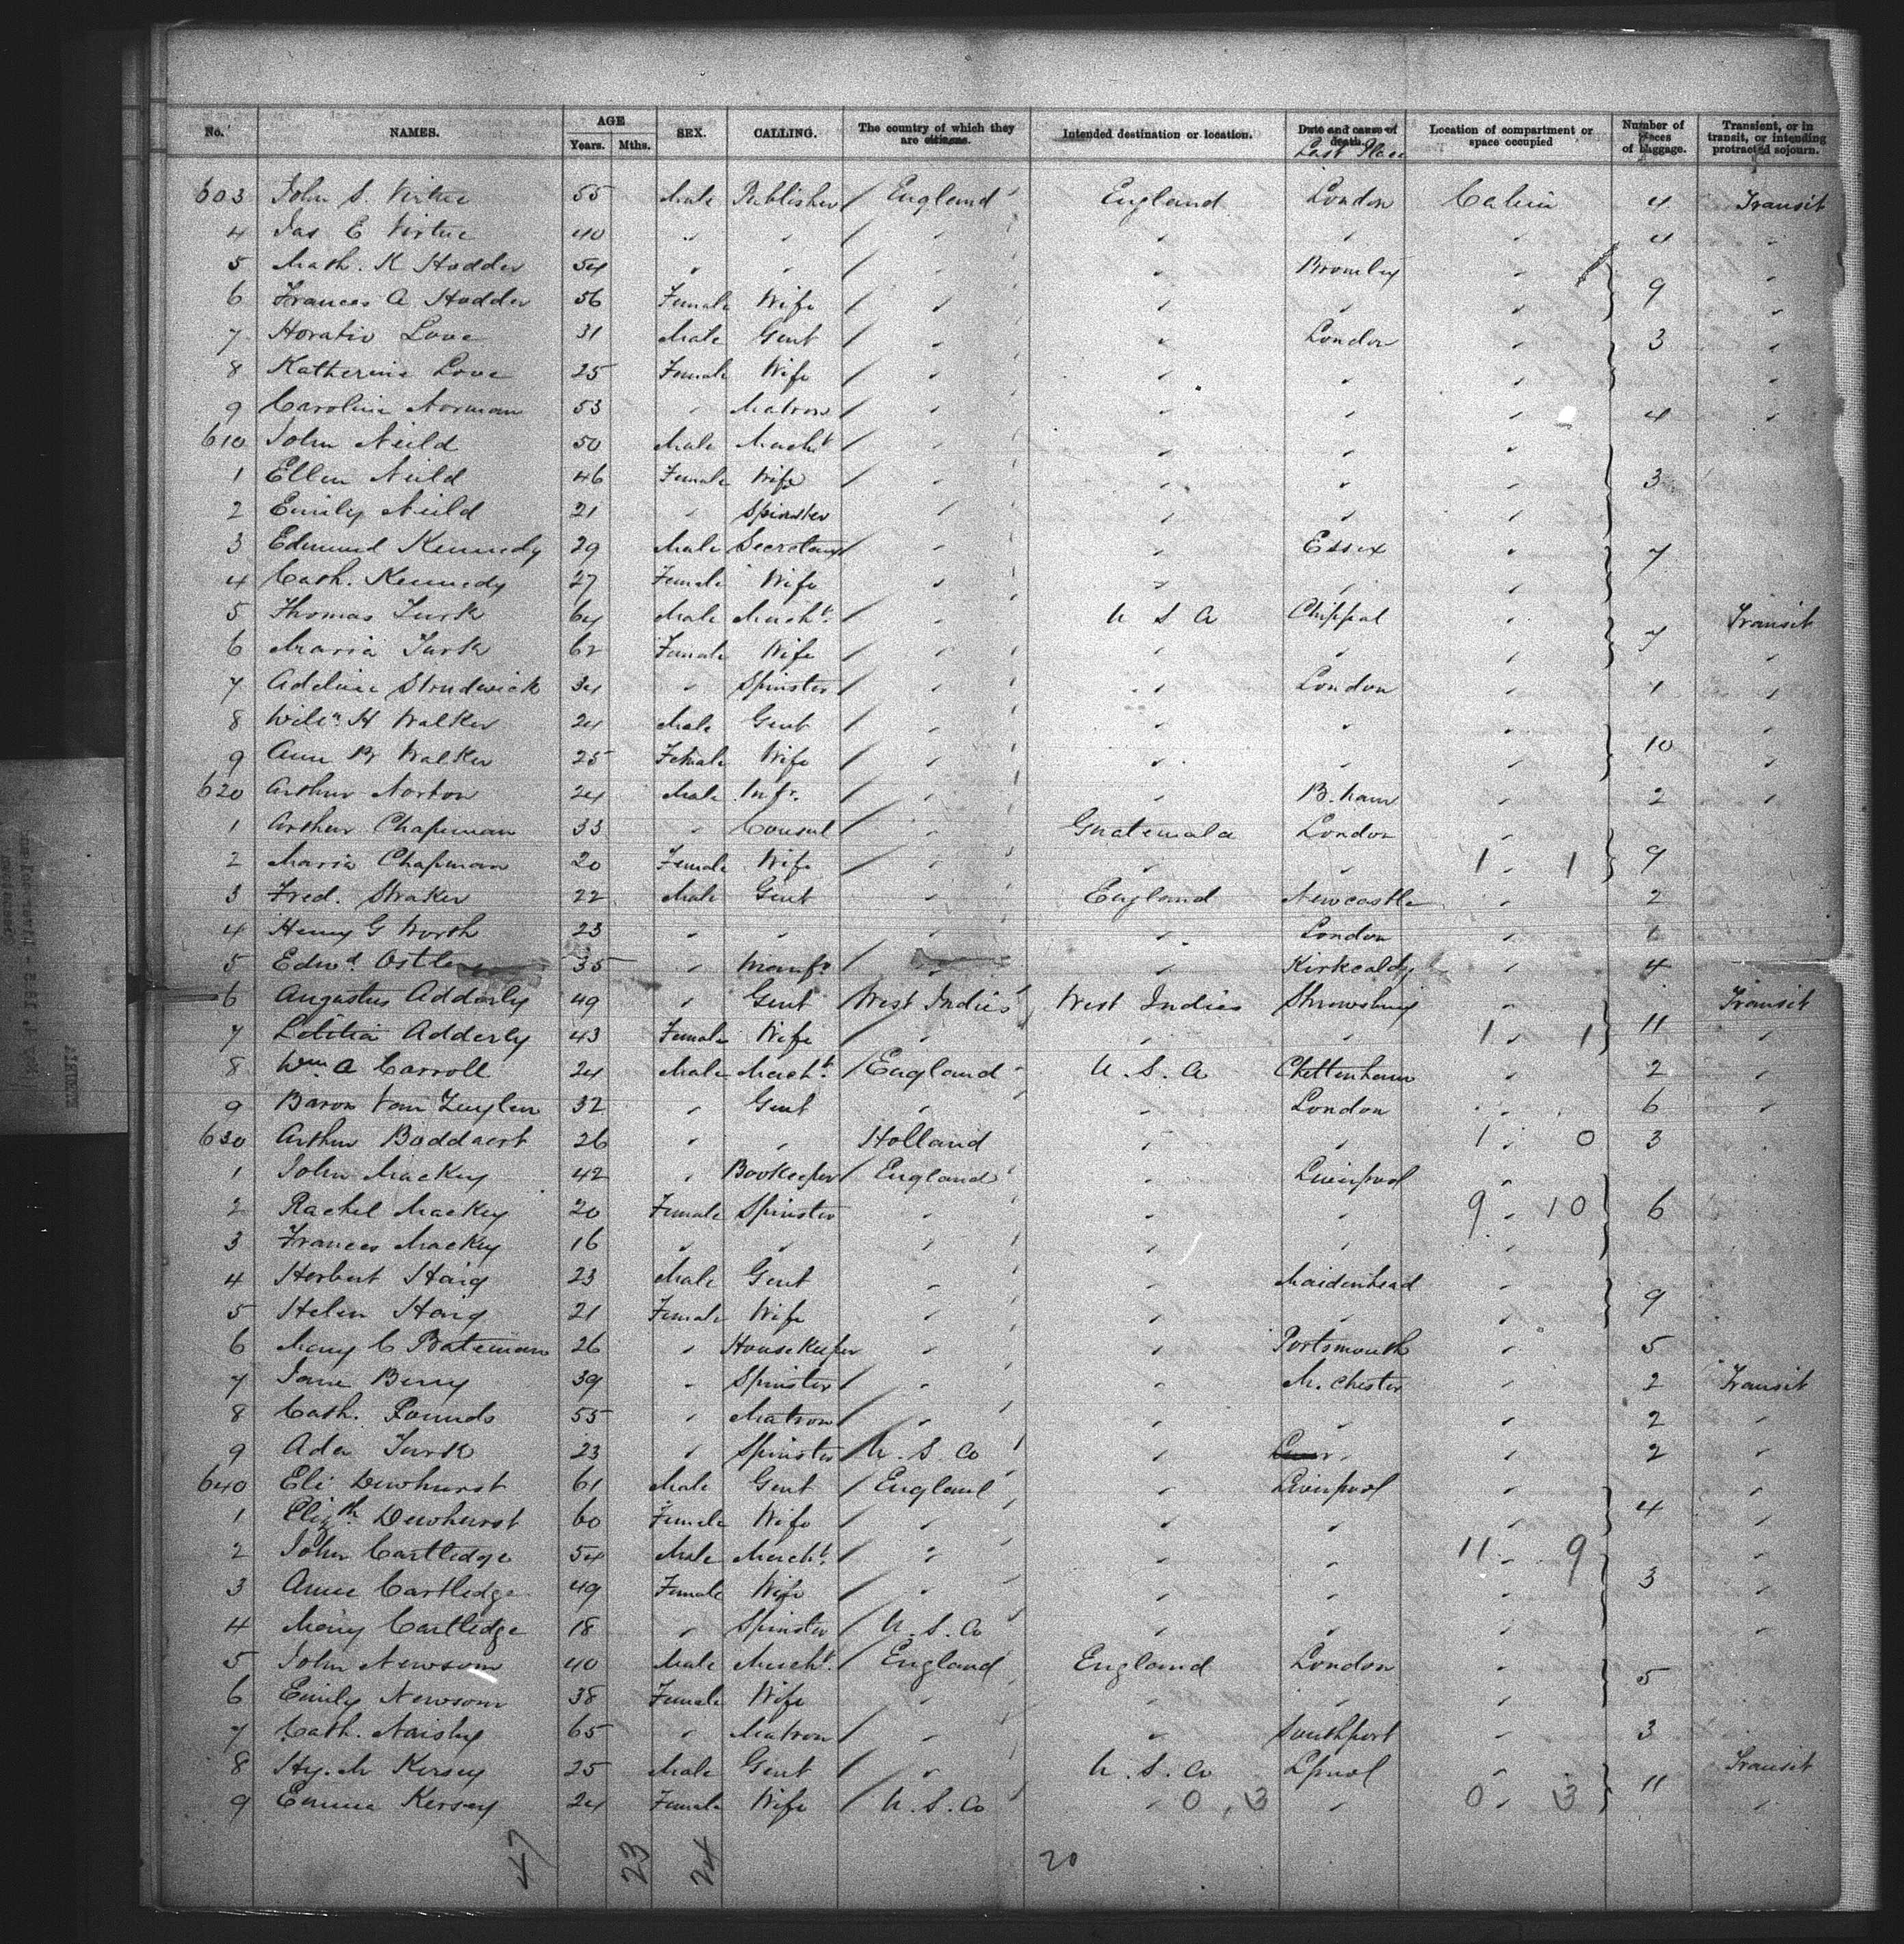 No. NAMES. AGE Years. Mths. SEX. CALLING. The country of which they are citizens. Intended destination or location. Date and cause of death. Last Place Location of compartment or space occupied Number of pieces of baggage. Transient, or in transit, or intending protracted sojourn.
603 John S. Virtue 55 Male Publisher / England England London Cabin 4 Transit
4 Jas E Virtue 40 " " / " " " " 4 "
5 Math. K Hodder 54 " " / " " Bromley " "
6 Frances A Hodder 56 Female Wife / " " " " 9 "
7 Horatio Love 31 Male Gent / " " London " 3 "
8 Katherine Love 25 Female Wife / " " " " "
9 Caroline Norman 53 " Matron / " " " " 4 "
610 John Neild 50 Male Mercht / " " " "
1 Ellen Neild 46 Female Wife / " " " " 3
2 Emily Neild 21 " Spinster " " " "
3 Edmund Kennedy 29 Male Secretary " " Essex " 7
4 Cath. Kennedy 27 Female Wife " " " "
5 Thomas Turk 64 Male Mercht. / " U S A " Transit
6 Maria Turk 62 Female Wife / " " " " 7 "
7 Adeline Strudwick 34 " Spinster / " " London " 1 "
8 Willm H Walker 24 Male Gent / " " " " "
9 Ann B Walker 25 Female Wife / " " " " 10 "
620 Arthur Norton 24 Male Mfr. / " " B.ham 2 "
1 Arthur Chapman 33 " Consul / " Guatemala London "
2 Maria Chapman 20 Female Wife / " " " 1 " 1 9
3 Fred. Straker 22 Male Gent " England Newcastle " 2
4 Henry G Worth 23 " " " " London " 1
5 Edwd. Ostlere 35 " Manfr / " " Kirkcaldy 4
6 Augustus Adderly 49 " Gent West Indies West Indies Shrewsbury " Transit
7 Letitia Adderly 43 Female Wife / " " " 1 " 1 11 "
8 Wm A Carroll 24 Male Mercht. / England U. S. A Cheltenham " 2 "
9 Baron Van Zuylen 32 " Gent " " London " 6 "
630 Arthur Boddaert 26 " " Holland " " 1 " 0 3
1 John Mackey 42 " Bookeeper England " Liverpool "
2 Rachel Mackey 20 Female Spinster " " " 9 " 10 6
3 Frances Mackey 16 " " " " " "
4 Herbert Haig 23 Male Gent " " Maidenhead "
5 Helen Haig 21 Female Wife " " " " 9
6 Mary C Bateman 26 " Housekeeper " " Portsmouth " 5
7 Jane Berry 39 " Spinster / " " M.chester " 2 Transit
8 Cath. Pounds 55 " Matron / " " " " 2 "
9 Ada Turk 23 " Spinster U. S. Co " " " 2 "
640 Eli Dewhurst 61 Male Gent / England " Liverpool " "
1 Elizth Dewhurst 60 Female Wife / " " " " 4 "
2 John Cartledge 54 Male Mercht. / " " " 11 " 9 "
3 Anne Cartledge 49 Female Wife / " " " " 3 "
4 Mary Cartledge 18 " Spinster U. S. Co " " " "
5 John Newsom 40 Male Mercht. / England England London "
6 Emily Newsom 38 Female Wife / " " " " 5
7 Cath. Naisby 65 " Matron / " " Southport " 3
8 Hy. M Kersey 25 Male Gent / " U. S. Co Lpool " Transit
9 Emma Kersey 24 Female Wife / U. S. Co " 0, 3 " 0 " 3 11 "
47 23 24 20